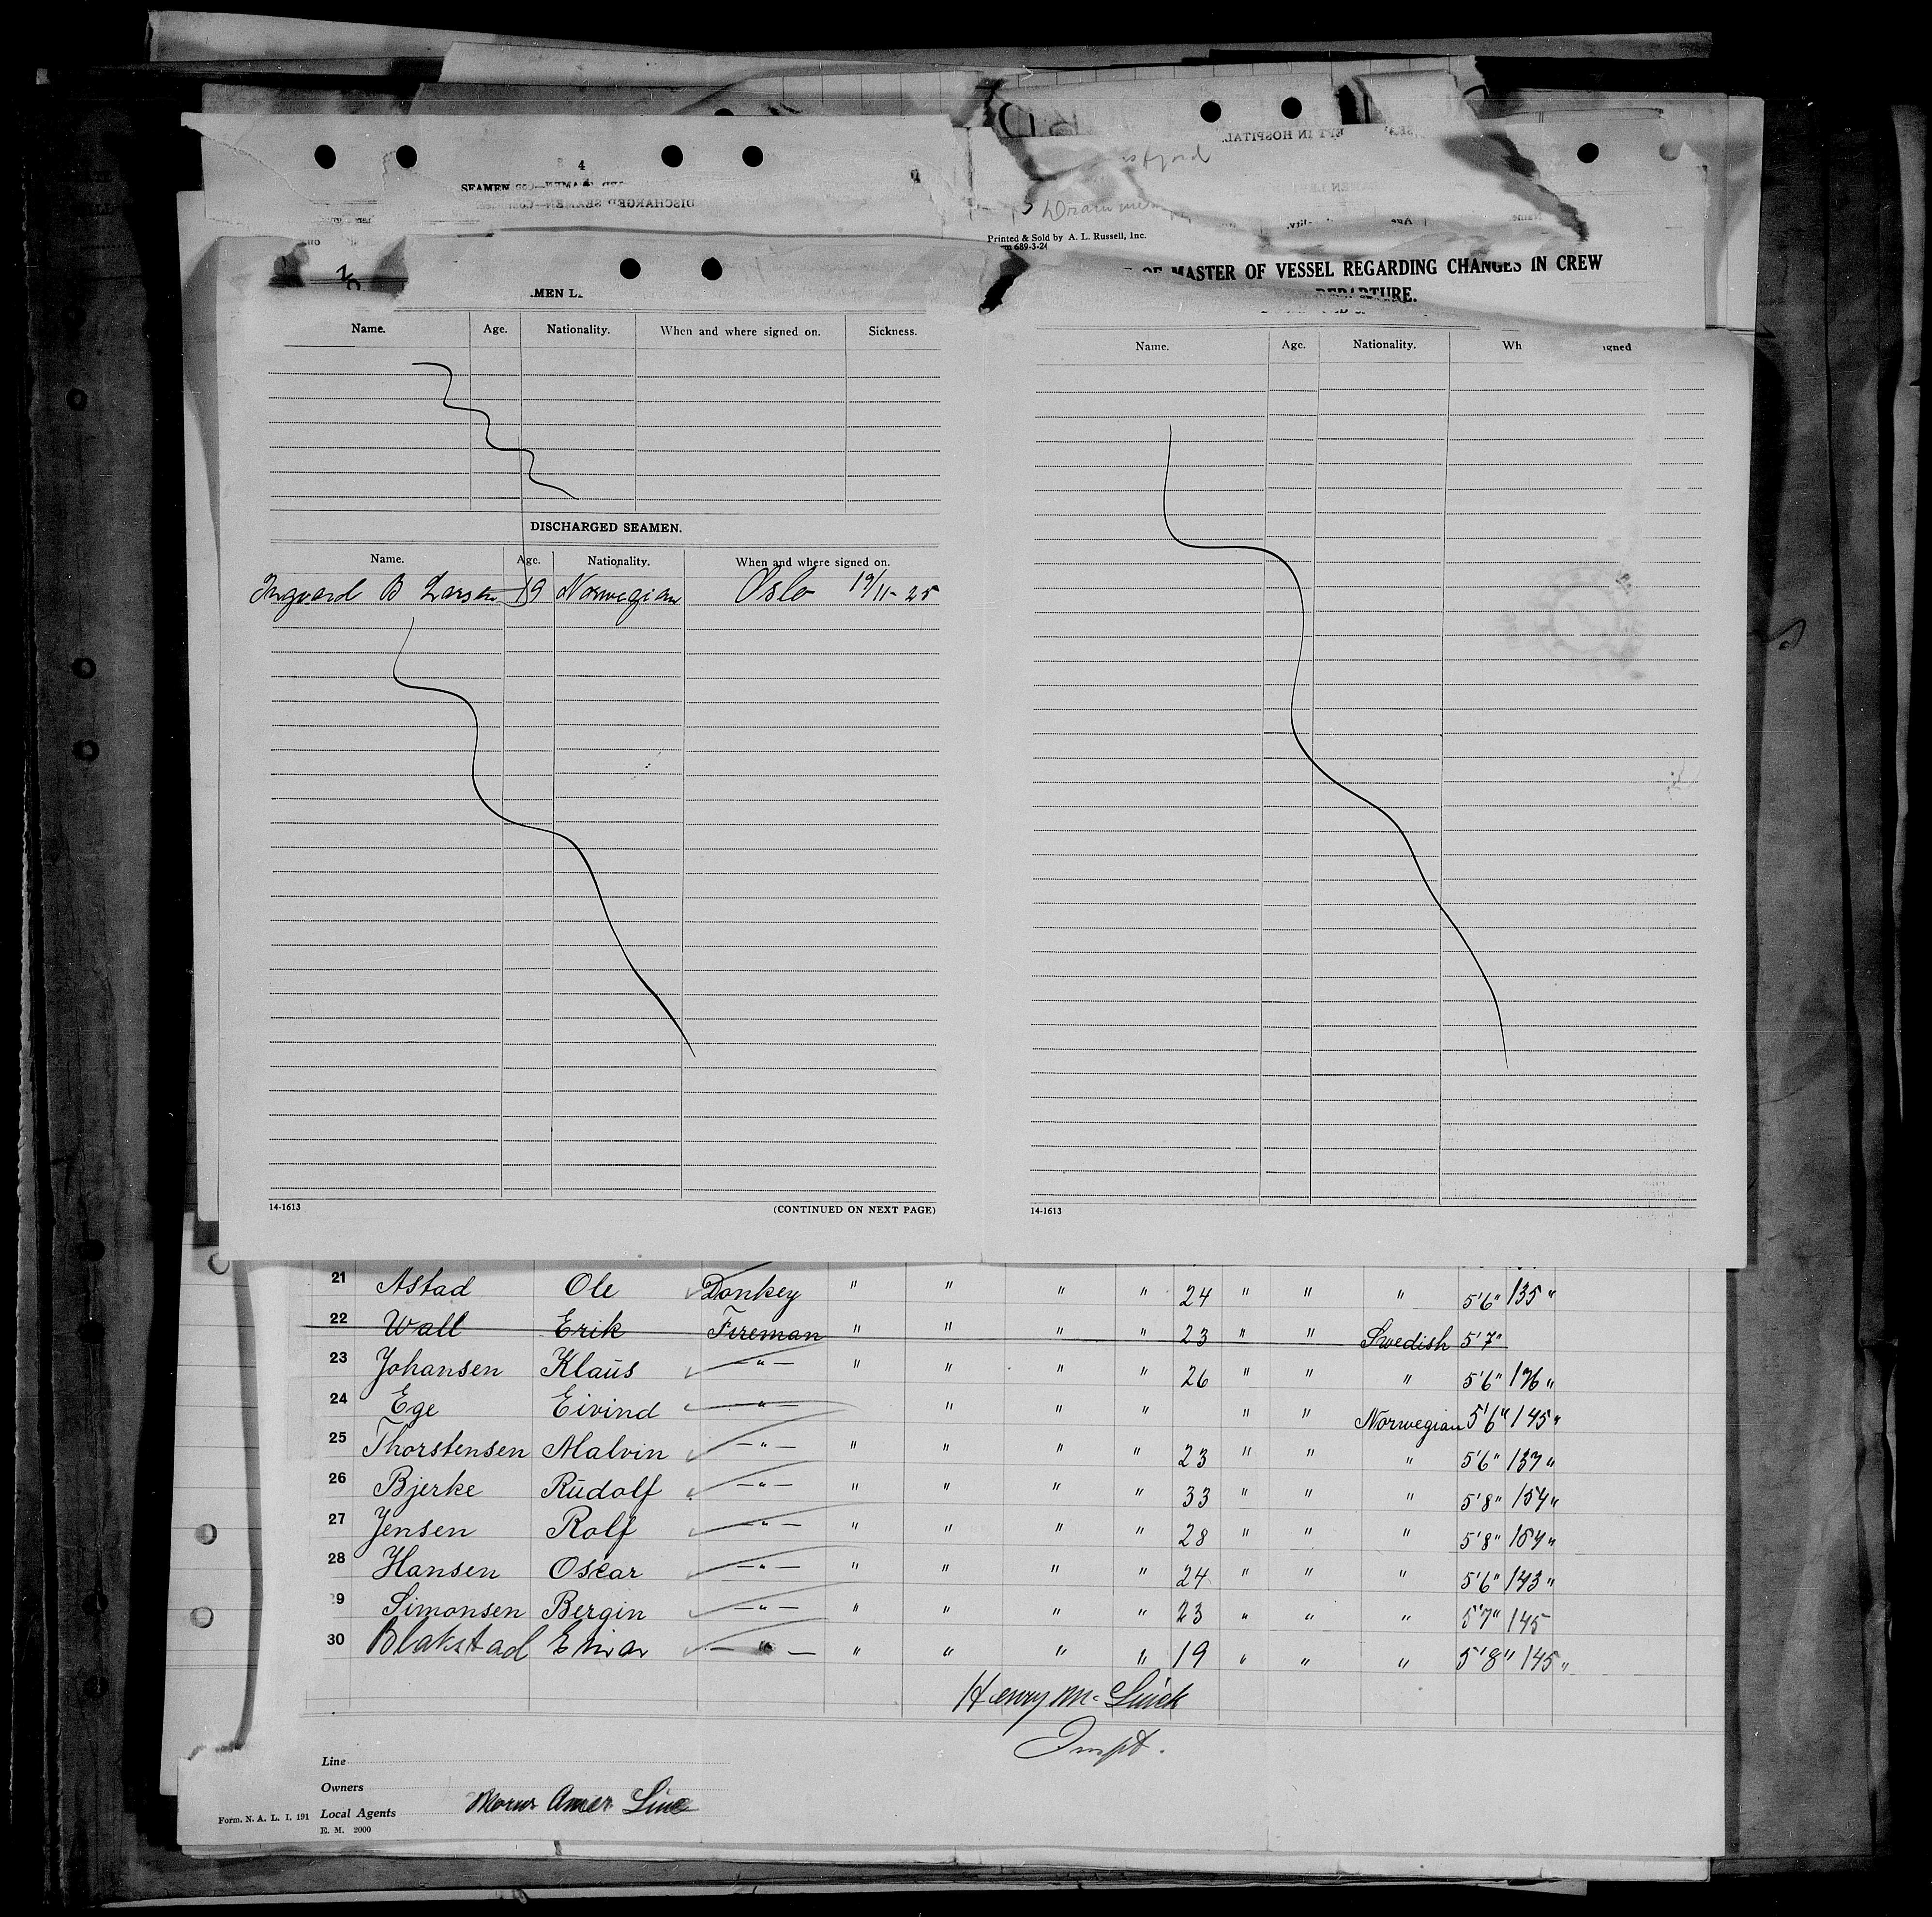 4
DISCHARGED SEAMEN
T IN HOSPITAL.
Printed & Sold by A. L. Russell, Inc.
689-3-24
MASTER OF VESSEL REGARDING CHANGES IN CREW
DEPARTURE.
MEN L
Name. Age. Nationality. When and where signed on. Sickness.
DISCHARGED SEAMEN.
Name. Age. Nationality. When and where signed on.
Ingvard B Larsen 19 Norwegian Oslo 19/11-25
14-1613 (CONTINUED ON NEXT PAGE)
Name. Age. Nationality. Wh igned
14-1613
21 Astad Ole Donkey " " " " 24 " " " 5'6" 135 "
22 Wall Erik Fireman " " " " 23 " " Swedish 5'7"
23 Johansen Klaus -"- " " " " 26 " " " 5'6" 136 "
24 Ege Eivind -"- " " " " " Norwegian 5'6" 145 "
25 Thorstensen Malvin -"- " " " " 23 " " " 5'6" 137 "
26 Bjerke Rudolf -"- " " " " 33 " " " 5'8" 154 "
27 Jensen Rolf -"- " " " " 28 " " " 5'8" 154 "
28 Hansen Oscar -"- " " " " 24 " " " 5'6" 143 "
29 Simonsen Bergin -"- " " " " 23 " " " 5'7" 145
30 Blakstad Einar -"- " " " " 19 " " " 5'8" 145 "
Henry Mc
Inspt.
Line
Owners
Form. N. A. L. I. 191 Local Agents Norw Amer Line
E. M. 2000